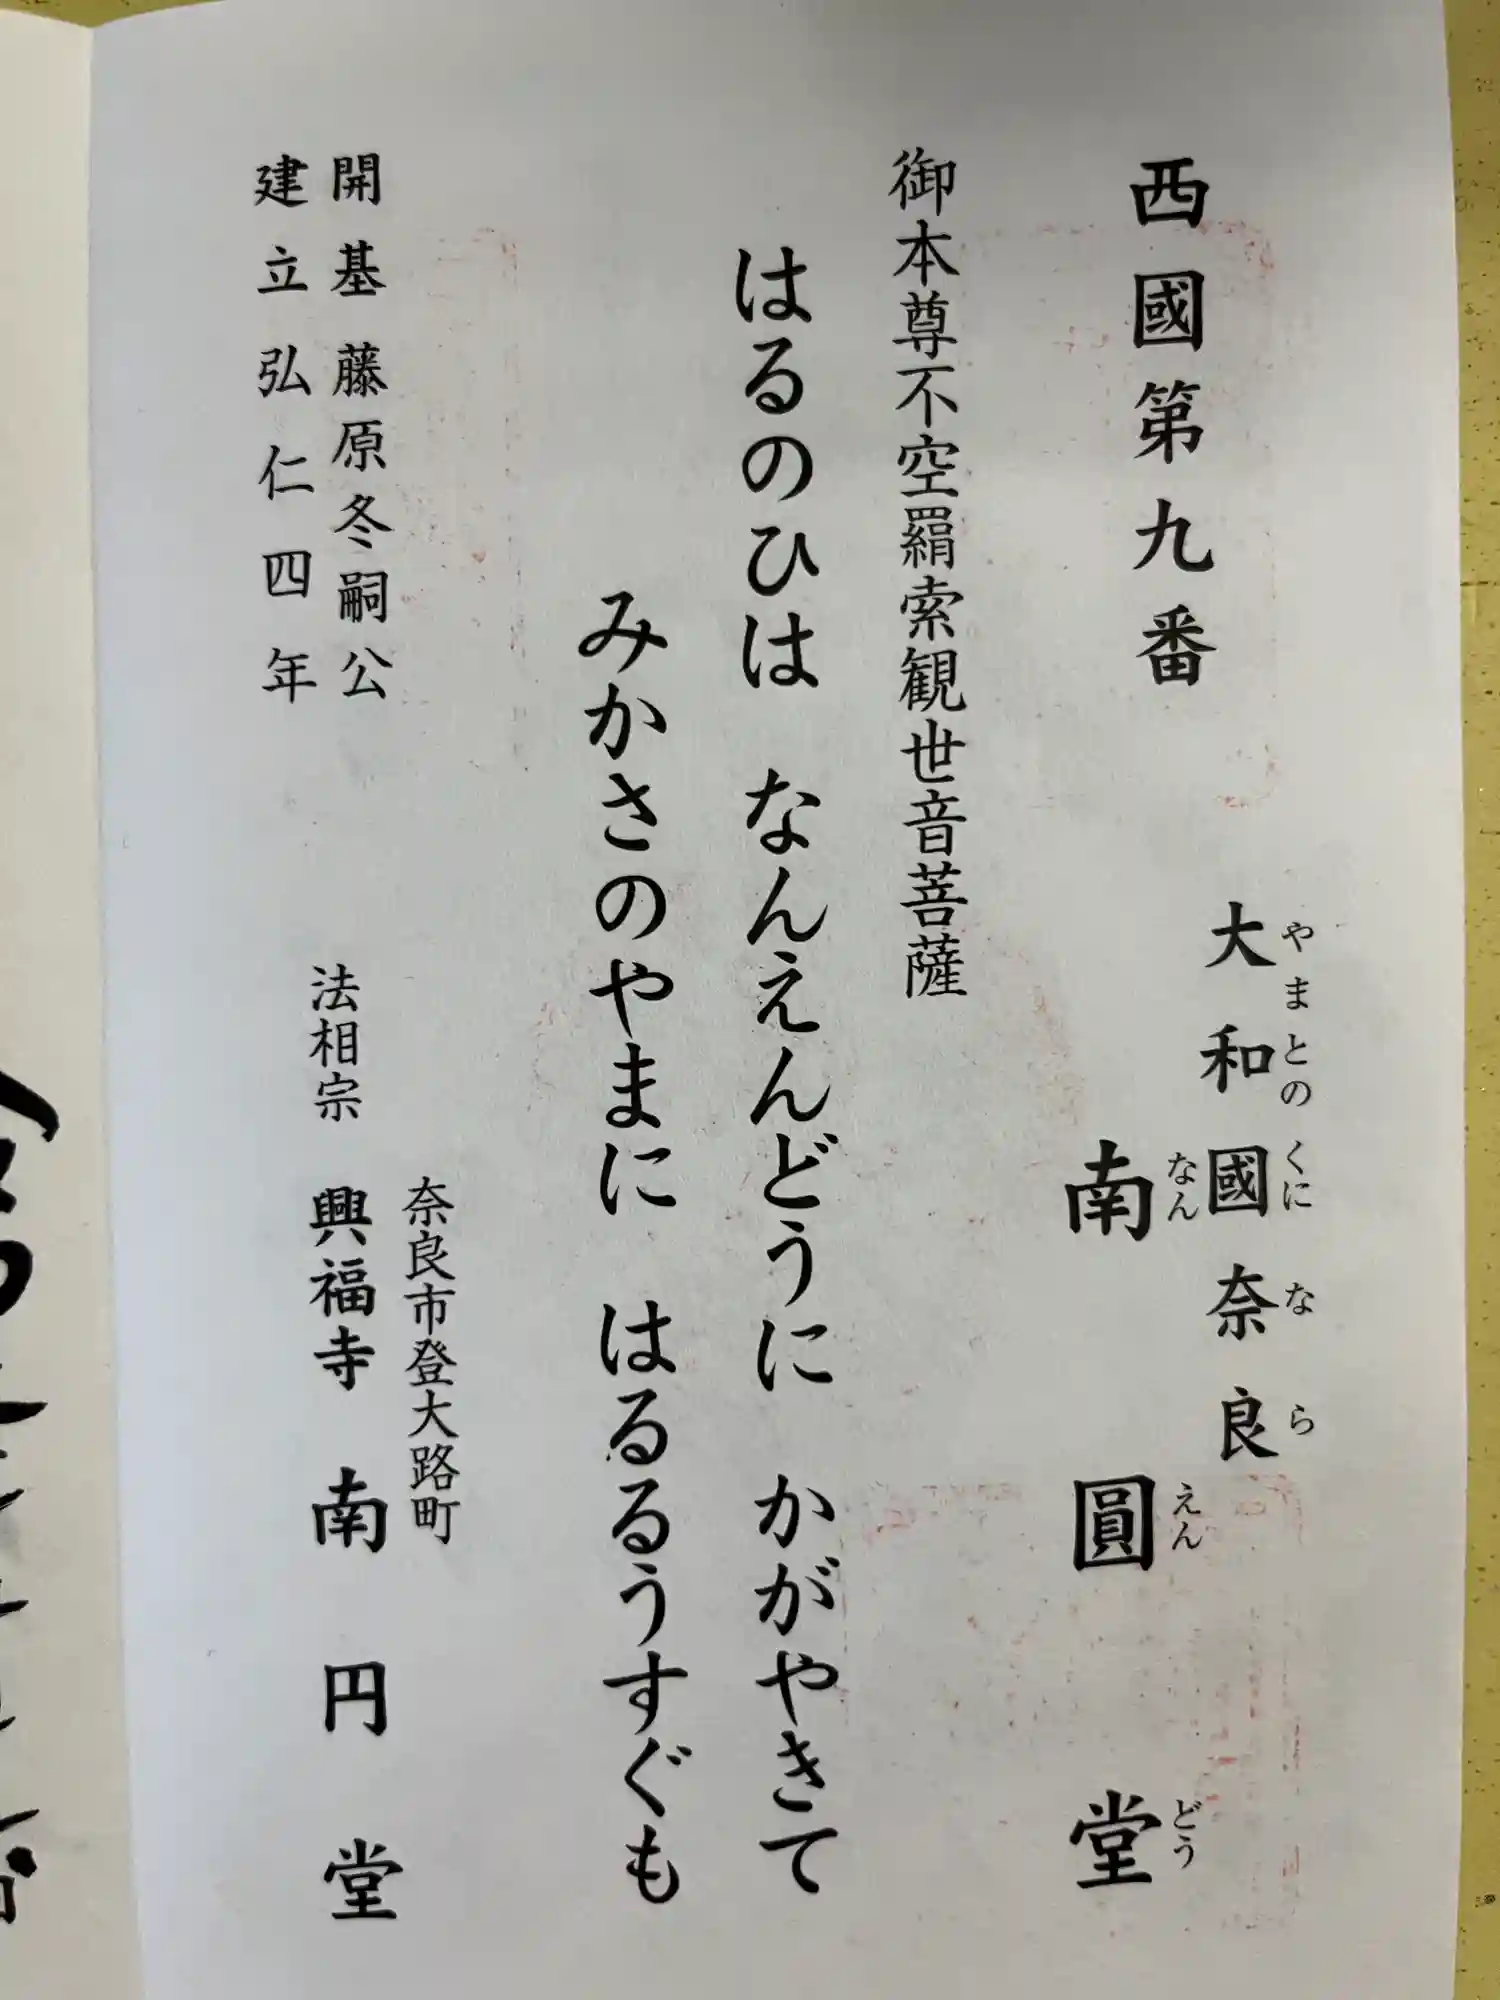 西國第九番
大和國奈良
やまとの くに な ら
南圓堂
なん えん どう
御本尊不空羂索観世音菩薩
はるのひは なんえんどうに かがやきて
みかさのやまに はるるうすぐも
開基 藤原冬嗣公
建立弘仁四年
奈良市登大路町
法相宗 興福寺 南円堂